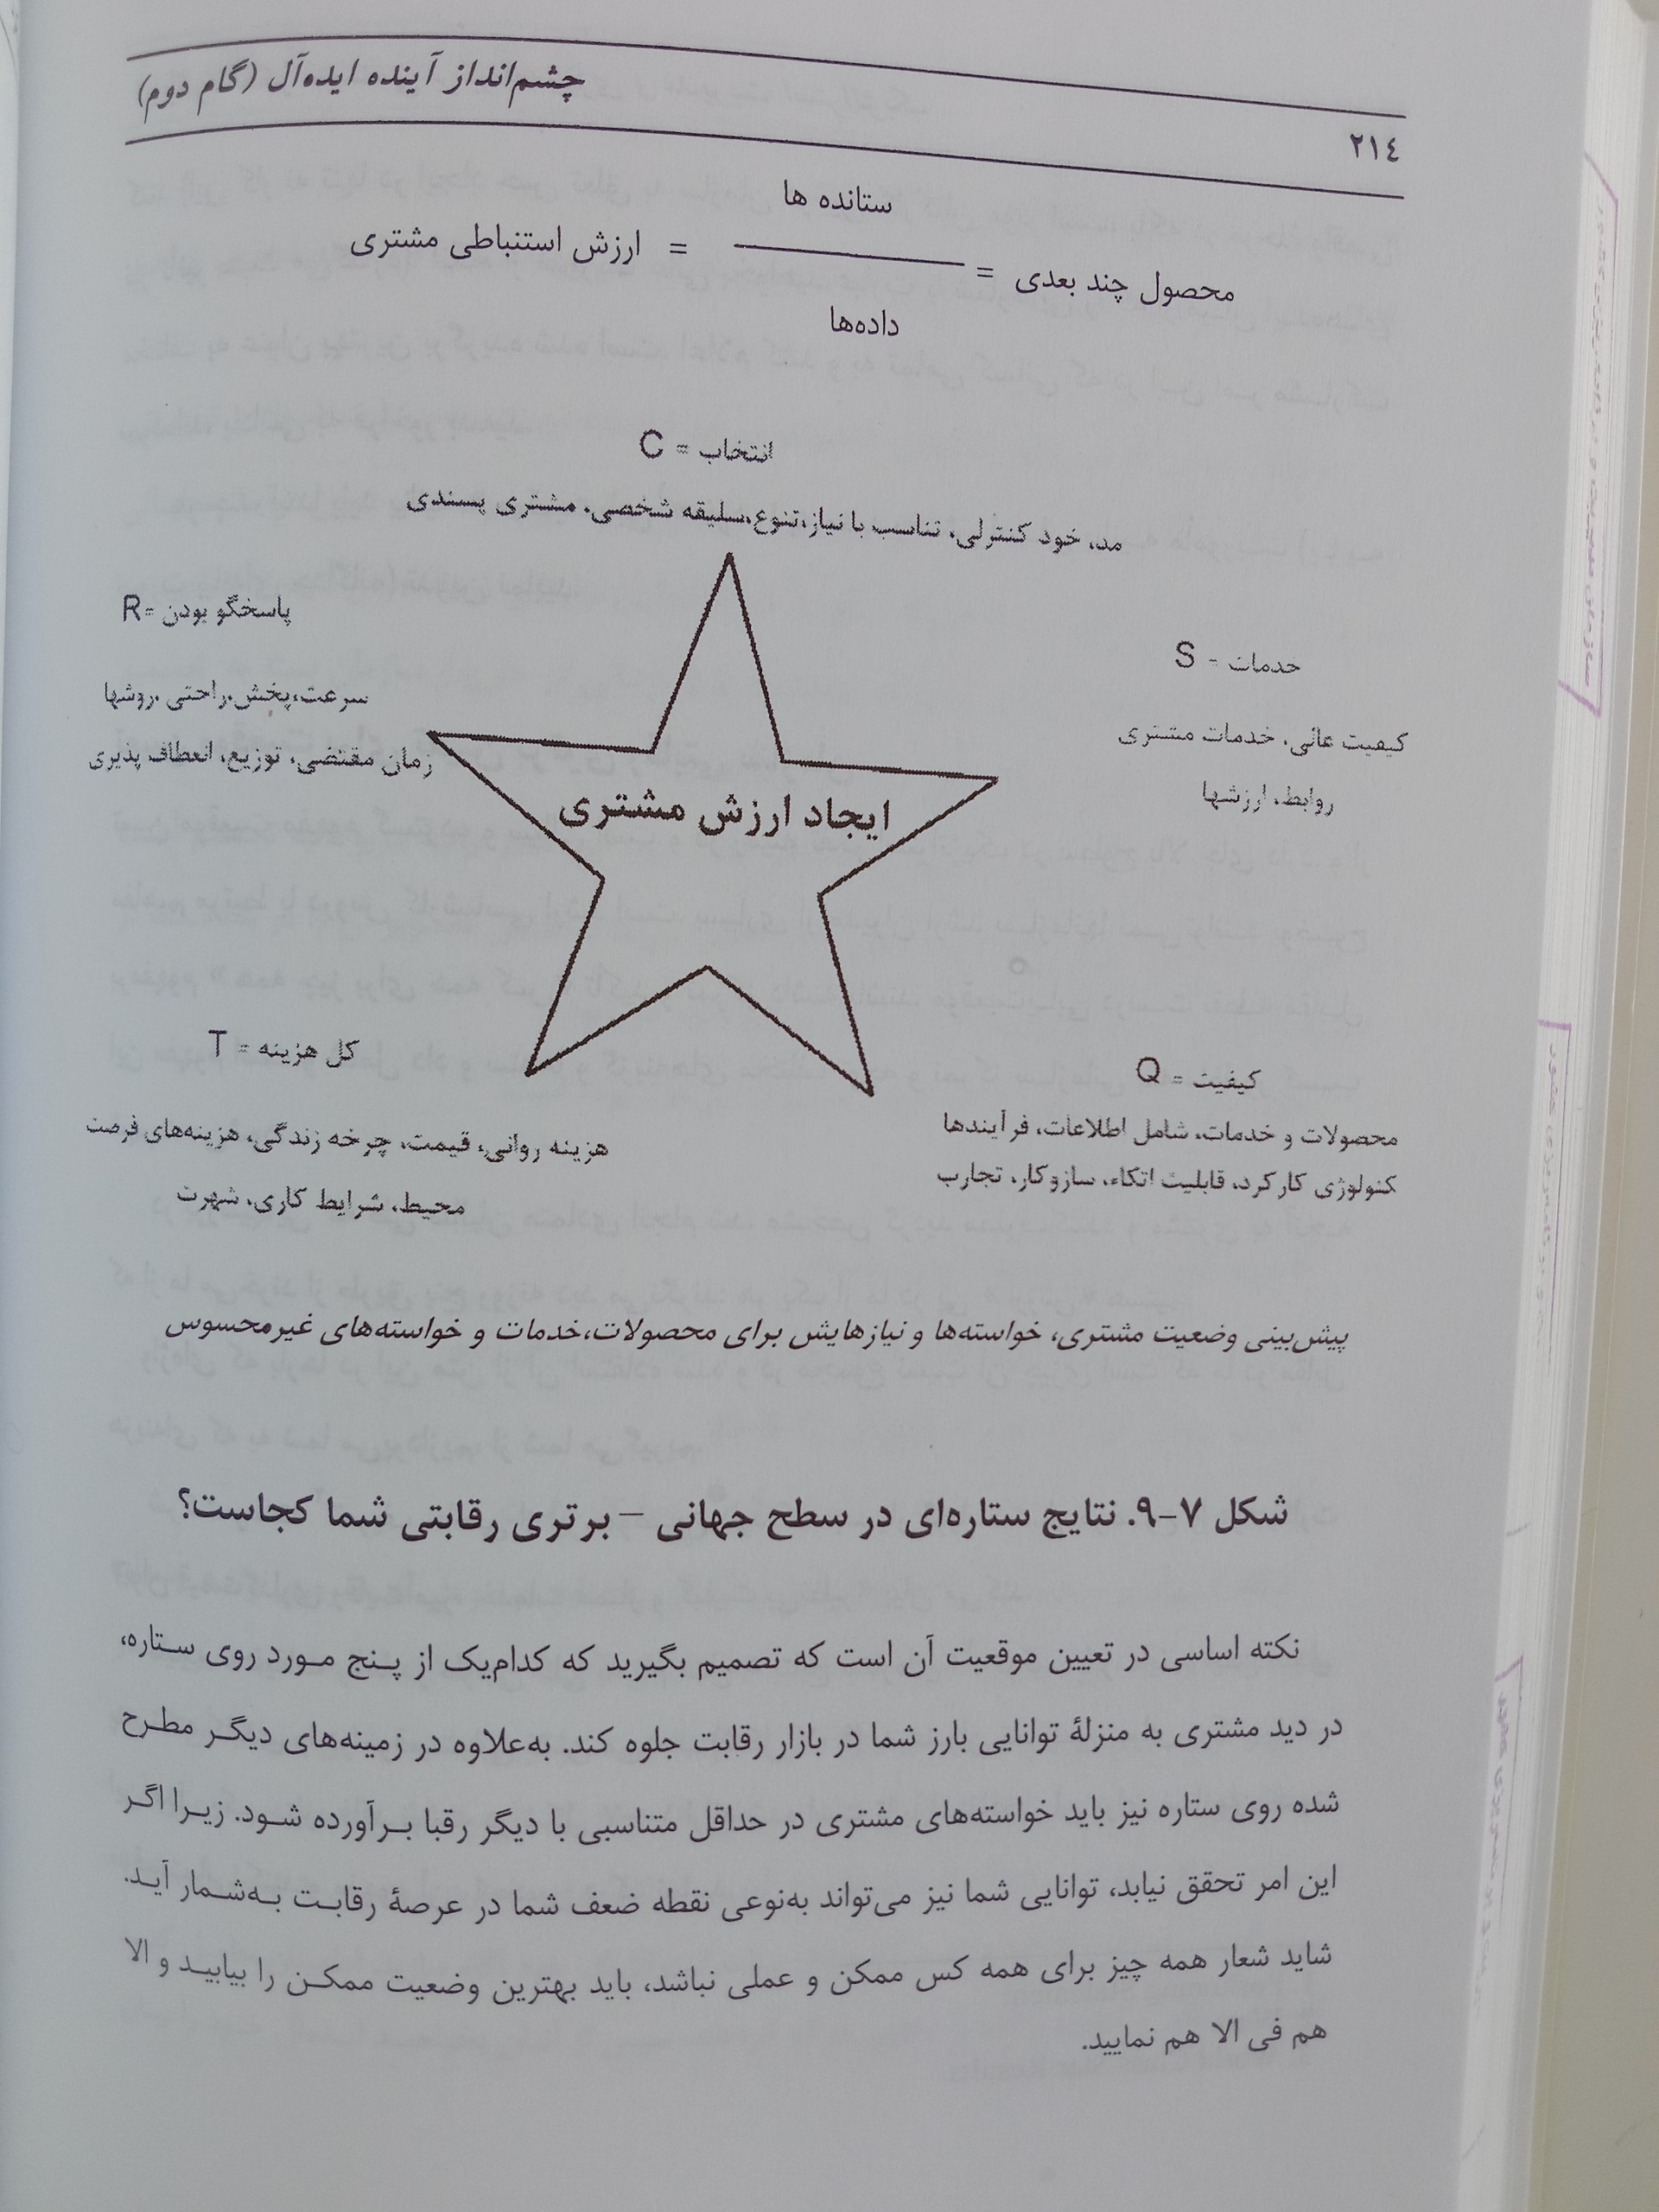 چشم‌انداز آینده ایده‌آل (گام دوم)
٢١٤
ستانده ها
محصول چند بعدی = ــــــــــ = ارزش استنباطی مشتری
داده‌ها
انتخاب = C
مد، خود کنترلی، تناسب با نیاز،تنوع،سلیقه شخصی، مشتری پسندی
پاسخگو بودن =R
سرعت،پخش،راحتی ،روشها
زمان مقتضی، توزیع، انعطاف پذیری
خدمات = S
کیفیت عالی، خدمات مشتری
روابط، ارزشها
ایجاد ارزش مشتری
کل هزینه = T
هزینه روانی، قیمت، چرخه زندگی، هزینه‌های فرصت
محیط، شرایط کاری، شهرت
کیفیت = Q
محصولات و خدمات، شامل اطلاعات، فرآیندها
کنولوژی کارکرد، قابلیت اتکاء، سازوکار، تجارب
پیش‌بینی وضعیت مشتری، خواسته‌ها و نیازهایش برای محصولات،خدمات و خواسته‌های غیرمحسوس
شکل ۷–۹. نتایج ستاره‌ای در سطح جهانی – برتری رقابتی شما کجاست؟
نکته اساسی در تعیین موقعیت آن است که تصمیم بگیرید که کدام‌یک از پنج مورد روی ستاره،
در دید مشتری به منزلهٔ توانایی بارز شما در بازار رقابت جلوه کند. به‌علاوه در زمینه‌های دیگر مطرح
شده روی ستاره نیز باید خواسته‌های مشتری در حداقل متناسبی با دیگر رقبا برآورده شود. زیرا اگر
این امر تحقق نیابد، توانایی شما نیز می‌تواند به‌نوعی نقطه ضعف شما در عرصهٔ رقابت به‌شمار آید.
شاید شعار همه چیز برای همه کس ممکن و عملی نباشد، باید بهترین وضعیت ممکن را بیابید و الا
هم فی الا هم نمایید.